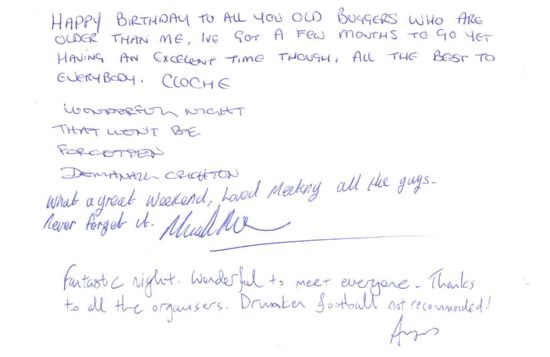 HAPPY BIRTHDAY TO ALL YOU OLD BUGGERS WHO ARE
OLDER THAN ME, I'VE GOT A FEW MONTHS TO GO YET
HAVING AN EXCELENT TIME THOUGH, ALL THE BEST TO
EVERYBODY. CLOCHE
WONDERFULL NIGHT
THAT WON'T BE
FORGOTTEN
CRIGHTON
What a great Weekend, Loved Meeting all the guys.
Never forget it.
Fantastic night. Wonderful to meet everyone. Thanks
to all the organisers. Drunken football not recommended!
Angus